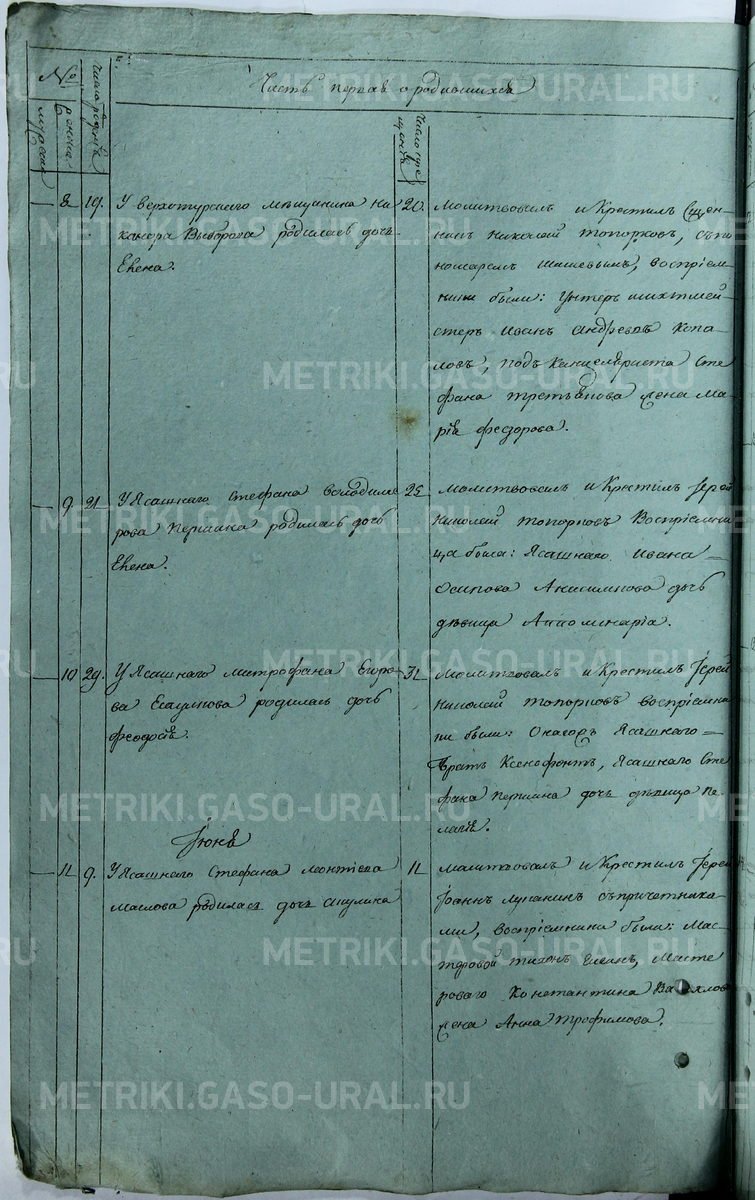 Часть первая о родившихся
№
Число рождения
Число крещения
8 19. У верхотурскаго мещанина ни
канора Выборова родилась дочь
Елена.
20. Молитвовалъ и Крестилъ Священ
никъ Николай Топорковъ, съ по
номаремъ Шишевымъ, воспрiем
ники были: Унтеръ шихтмей
стеръ Иванъ Андреевъ Копа
ловъ, подъ Канцеляриста Сте
фана третьякова жена Ма
рiя Федорова.
9. 21 У Ясашнаго Стефана Володиме
рова Першина родилась дочь
Елена.
25 Молитвовалъ и Крестилъ Iерей
Николай Топорковъ Воспрiемни
ца была: Ясашнаго Ивана
Осипова Анисимкова дочь
девица Аполинарiа.
10 29. У Ясашнаго митрофана Егоро
ва Есаулкова родилась дочь
феодосiя.
31 Молитвовалъ и Крестилъ Iерей
Николай Топорковъ воспрiемни
ки были: Ясашнаго
братъ Ксенофонтъ, Ясашнаго Сте
фана першина дочь девица пе
лагiя.
Iюня
11 9. У Ясашнаго Стефана леонтiева
Маслова родилась дочь акулина
11 Молитвовалъ и Крестилъ Iерей
Iоаннъ Лупанинъ съ причетника
ми, Воспрiемники были: Мас
теровой тихонъ, Масте
роваго Константина
жена Анна Трофимова.
METRIKI.GASO-URAL.RU